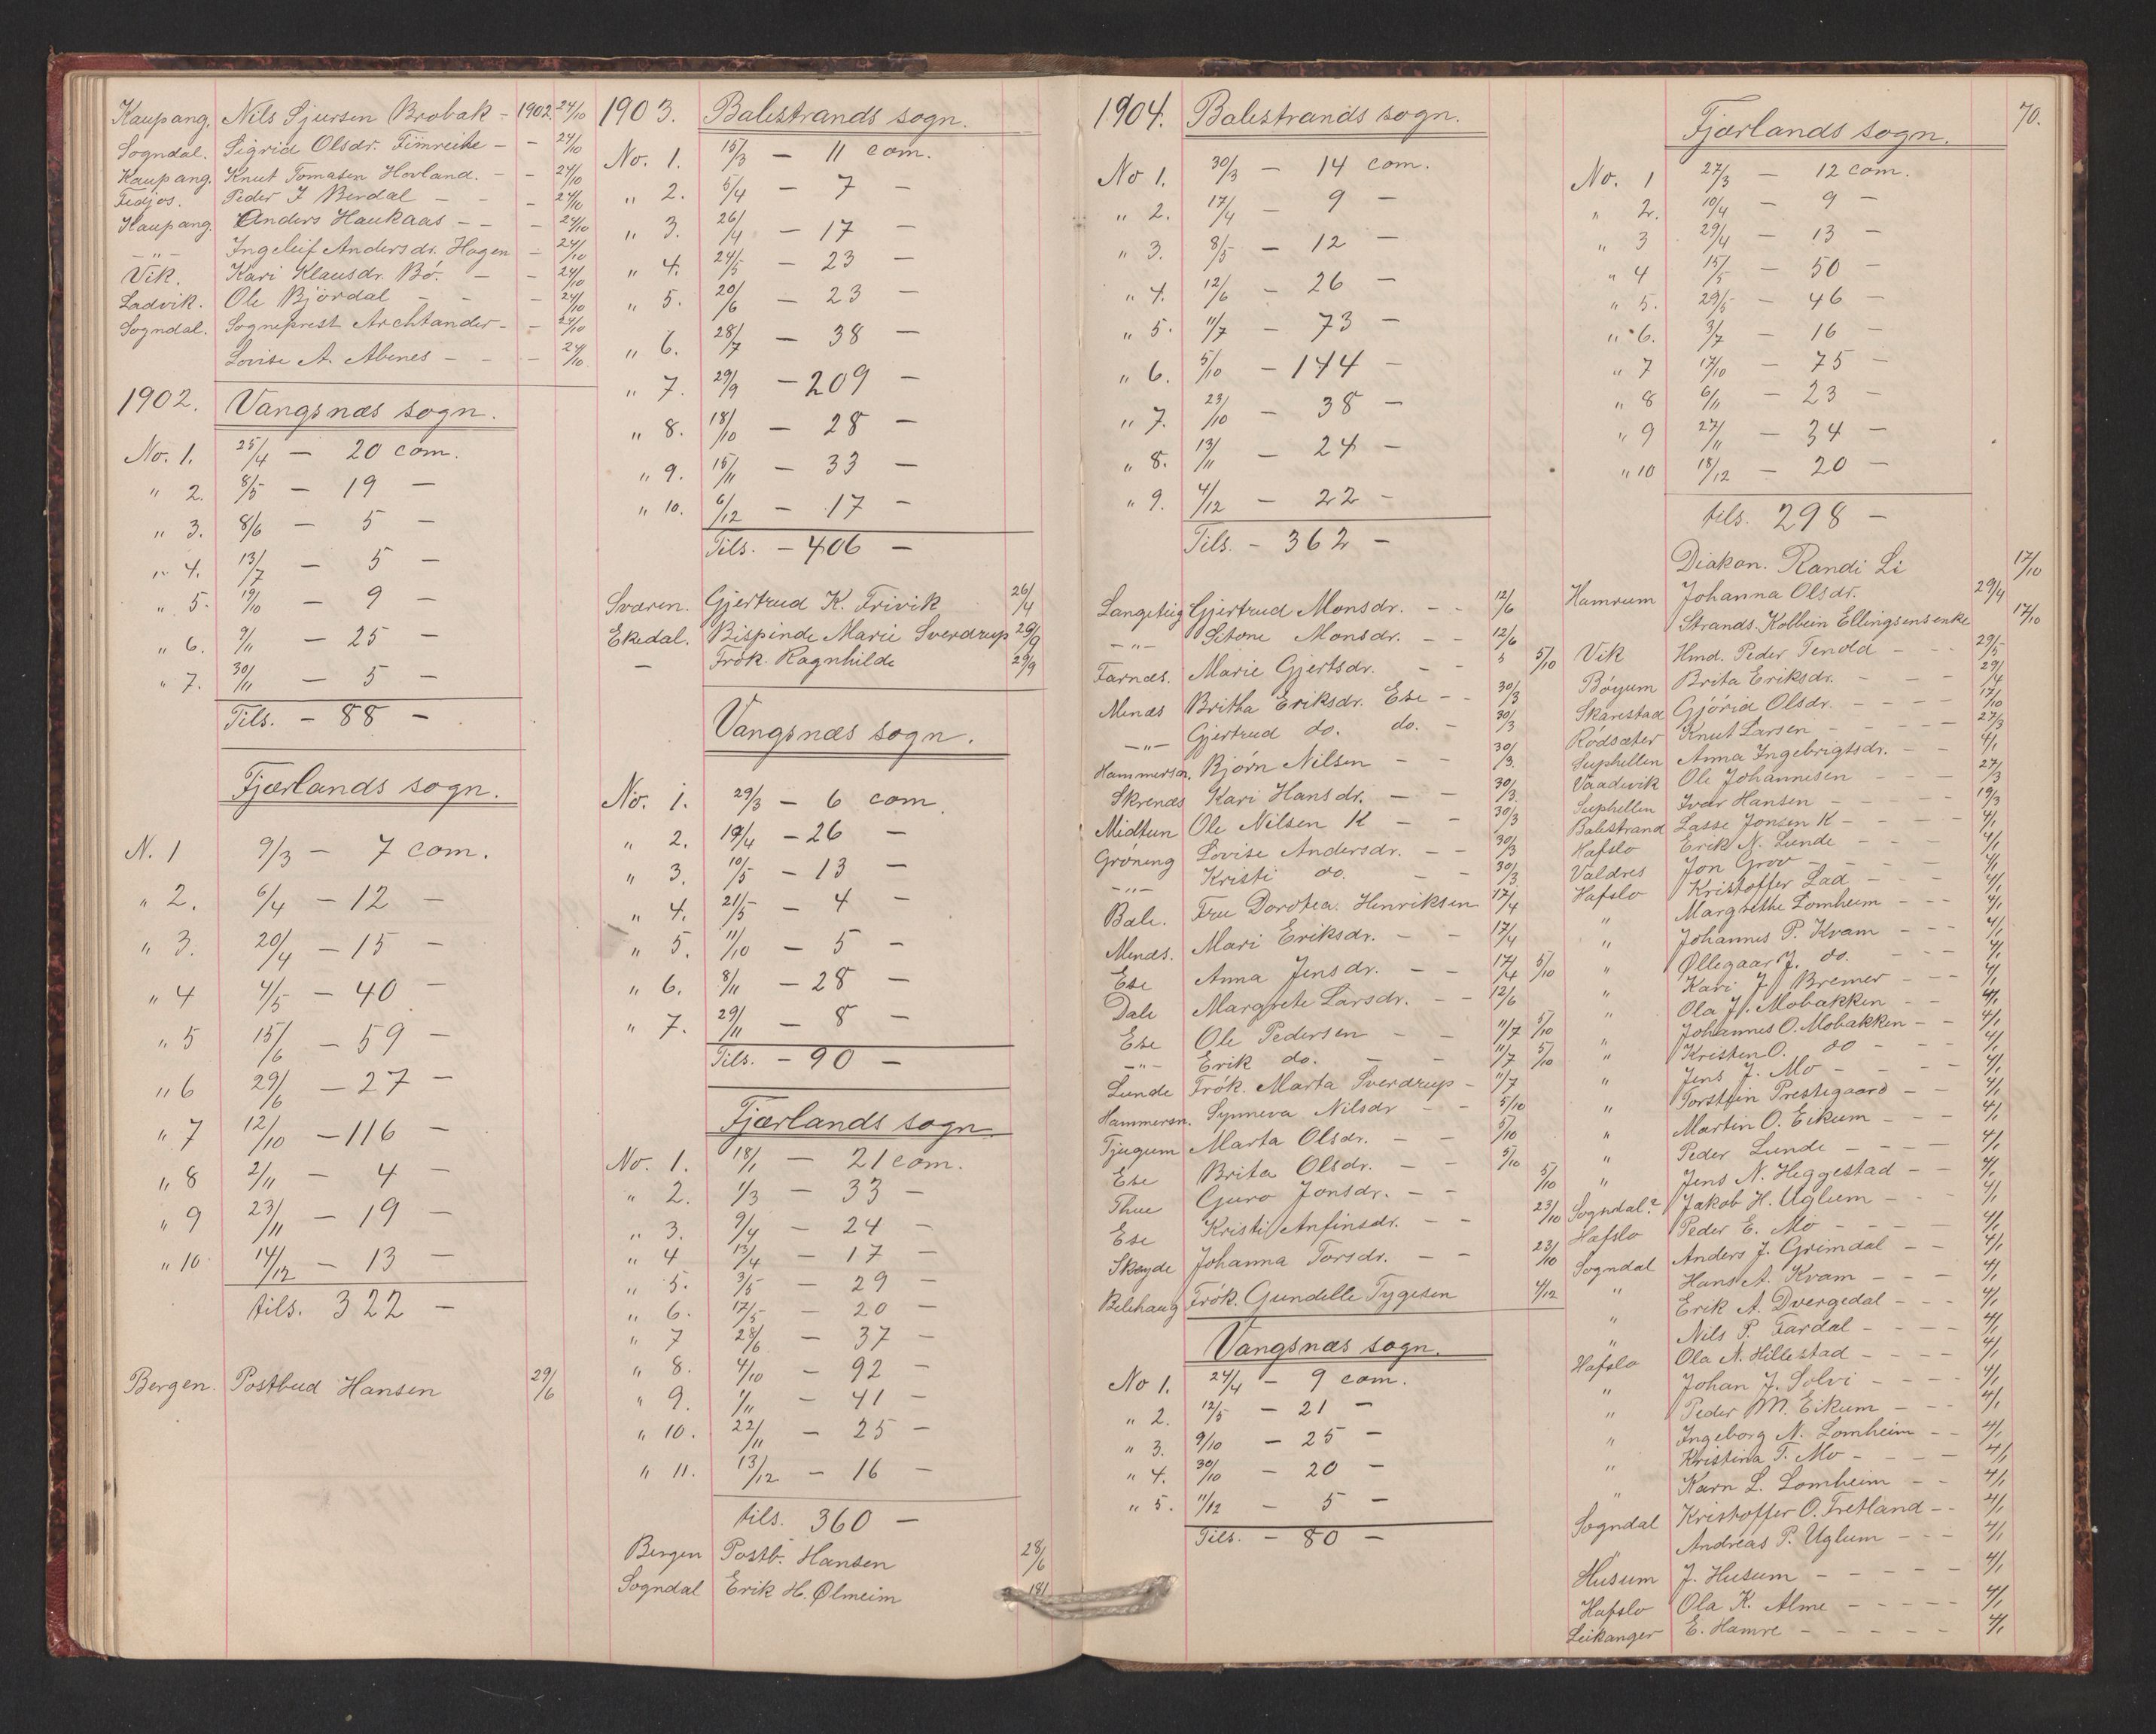 Kaupang. Nils Sjursen Brobak - 1902. 24/10
Sogndal. Sigrid Olsdr. Fimreite - - 24/10
Kaupang. Knut Tomasen Hovland. - - 24/10
Fedjos. Peder I Berdal - - - 24/10
Kaupang. Anders Haukaas - - - 24/10
-"- Ingeleif Andersdr. Hagen - 24/10
Vik. Kari Klausdr. Bö. - - 24/10
Ladvik. Ole Björdal - - - 24/10
Sogndal. Sogneprest Archtander - - 24/10
Lovise A. Abenes - - - 24/10
1902. Vangsnæs sogn.
No. 1. 25/4 - 20 com.
" 2. 8/5 - 19 -
" 3. 8/6 - 5 -
" 4. 13/7 - 5 -
" 5. 19/10 - 9 -
" 6. 9/11 - 25 -
" 7. 30/11 - 5 -
Tils. - 88 -
Fjærlands sogn.
N. 1 9/3 - 7 com.
" 2. 6/4 - 12 -
" 3. 20/4 - 15 -
" 4 4/5 - 40 -
" 5 15/6 - 59 -
" 6 29/6 - 27 -
" 7 12/10 - 116 -
" 8 2/11 - 4 -
" 9 23/11 - 19 -
" 10 14/12 - 13 -
tils. 322 -
Bergen. Postbud Hansen 29/6
1903. Balestrands sogn.
No. 1. 15/3 - 11 com.
" 2. 5/4 - 7 -
" 3. 26/4 - 17 -
" 4. 24/5 - 23 -
" 5. 20/6 - 23 -
" 6. 28/7 - 38 -
" 7. 29/9 - 209 -
" 8. 18/10 - 28 -
" 9. 15/11 - 33 -
" 10. 6/12 - 17 -
Tils. - 406 -
Sværen. Gjertrud K. Frivik 26/4
Ekedal. Bispinde Marie Sverdrup 29/9
- Frök. Ragnhilde 29/9
Vangsnæs sogn.
No. 1. 29/3 - 6 com.
" 2. 19/4 - 26 -
" 3. 10/5 - 13 -
" 4. 21/5 - 4 -
" 5. 11/10 - 5 -
" 6. 8/11 - 28 -
" 7. 29/11 - 8 -
Tils. - 90 -
Fjærlands sogn.
No. 1. 18/1 - 21 com.
" 2. 1/3 - 33 -
" 3. 9/4 - 24 -
" 4 13/4 - 17 -
" 5. 3/5 - 29 -
" 6. 17/5 - 20 -
" 7 28/6 - 37 -
" 8. 4/10 - 92 -
" 9. 1/11 - 41 -
" 10. 22/11 - 25 -
" 11. 13/12 - 16 -
tils. 360 -
Bergen Postb. Hansen 28/6
Sogndal Erik H. Ølmeim 18/
1904. Balestrands sogn.
No 1. 30/3 - 14 com.
" 2. 17/4 - 9 -
" 3. 8/5 - 12 -
" 4. 12/6 - 26 -
" 5. 11/7 - 73 -
" 6. 5/10 - 144 -
" 7. 23/10 - 38 -
" 8. 13/11 - 24 -
" 9. 4/12 - 22 -
Tils. - 362 -
Langeteig Gjertrud Monsdr. - - 12/6
-"- Sitone Monsdr. - - 12/6
Farnæs. Marie Gjertsdr. - - 5 5/10
Menæs Britha Eriksdr. Ese - - 30/3
-"- Gjertrud do. do. - 30/3
Hammersn. Björn Nilsen - - 30/3.
Skrenæs Kari Hansdr. - - 30/3.
Midtun Ole Nilsen K - - 30/3
Gröning Lovise Andersdr. - - 30/3
-"- Kristi do. - - 30/3.
Bale. Fru Dorotea Henriksen 17/4
Menæs. Mari Eriksdr. - - 17/4
Ese Anna Jensdr. - - 17/4 5/10
Dale Margrete Larsdr. - - 12/6
Ese Ole Pedersen - - 11/7 5/10
-"- Erik do. - - 11/7 5/10
Lunde Frök. Marta Sverdrup - 11/7
Hammersn. Synneva Nilsdr - - 5/10
Tjugum Marta Olsdr. - - 5/10
Ese Brita Olsdr. - - 5/10
Thue Guro Jonsdr. - - 5/10
Ese Kristi Anfinsdr. - - 23/10
Skøyde Johanna Torsdr. - - 23/10
Belehaug Frök. Gundelle Tygesen 4/12
Vangsnæs sogn.
No 1. 24/4 - 9 com.
" 2. 12/5 - 21 -
" 3. 9/10 - 25 -
" 4. 30/10 - 20 -
" 5. 11/12 - 5 -
Tils. - 80 -
70.
Fjærlands sogn.
No. 1 27/3 - 12 com.
" 2. 10/4 - 9 -
" 3 29/4 - 13 -
" 4 15/5 - 50 -
" 5. 29/5 - 46 -
" 6. 3/7 - 16 -
" 7 17/10 - 75 -
" 8 6/11 - 23 -
" 9 27/11 - 34 -
" 10 18/12 - 20 -
tils. 298 -
Diakon. Randi Li 17/10
Hamrum Johanna Olsdr. 29/4
Strands. Kolbein Ellingsensenke 17/10
Vik Hmd. Peder Tenold - - - 29/5
Böyum Brita Eriksdr. - - - 29/4
Skarestad Gjöria Olsdr. - - - - 17/10
Rödsæter Knut Larsen - - - - 27/3
Suphellen Anna Ingebrigtsdr. - - 4/1
Vaadevik Ole Johannesen - - - 27/3
Suphellen Ivar Hansen - - - - 19/3
Balestrand Lasse Jonsen K - - - - 4/1
Hafslo Erik N. Lunde - - - 4/1
Valdres Jon Grov - - - - 4/1
Hafslo Kristoffer Lad - - - 4/1
" Margrethe Lomheim - - - 4/1
" Johannes P. Kvam - - - 4/1
" Øllegaar J. do. - - - 4/1
" Kari J Bremer - - - 4/1
" Ola J. Mobakken - - 4/1
" Johannes O. Mobakken - - 4/1
" Kristen O. do - - - 4/1
" Jens J. Mo - - - - 4/1
" Torstein Prestegaard - - 4/1
" Martin O. Eikum - - - 4/1
" Peder Lunde - - - - 4/1
" Jens N. Heggestad - - 4/1
Sogndal? Jakob H. Uglum - - - 4/1
Hafslo Peder E. Mo - - - - 4/1
Sogndal Anders J. Grimdal - - 4/1
" Hans A. Kvam - - - 4/1
" Erik A. Dvergedal - - - 4/1
" Nils P. Fardal - - - - 4/1
Hafslo Ola N. Hillestad - - - - 4/1
" Johan J. Solvi - - - - 4/1
" Peder M. Eikum - - - 4/1
" Ingeborg N. Lomheim - - 4/1
" Kristina T. Mo - - - - 4/1
" Karn L. Lomheim - - 4/1
Sogndal Kristoffer O. Fretland - - 4/1
" Andreas P. Uglum - - - 4/1
Husum J. Husum - - - - - 4/1
Hafslo Ola K. Alme - - - - - 4/1
Leikanger E. Hamre - - - - - 4/1